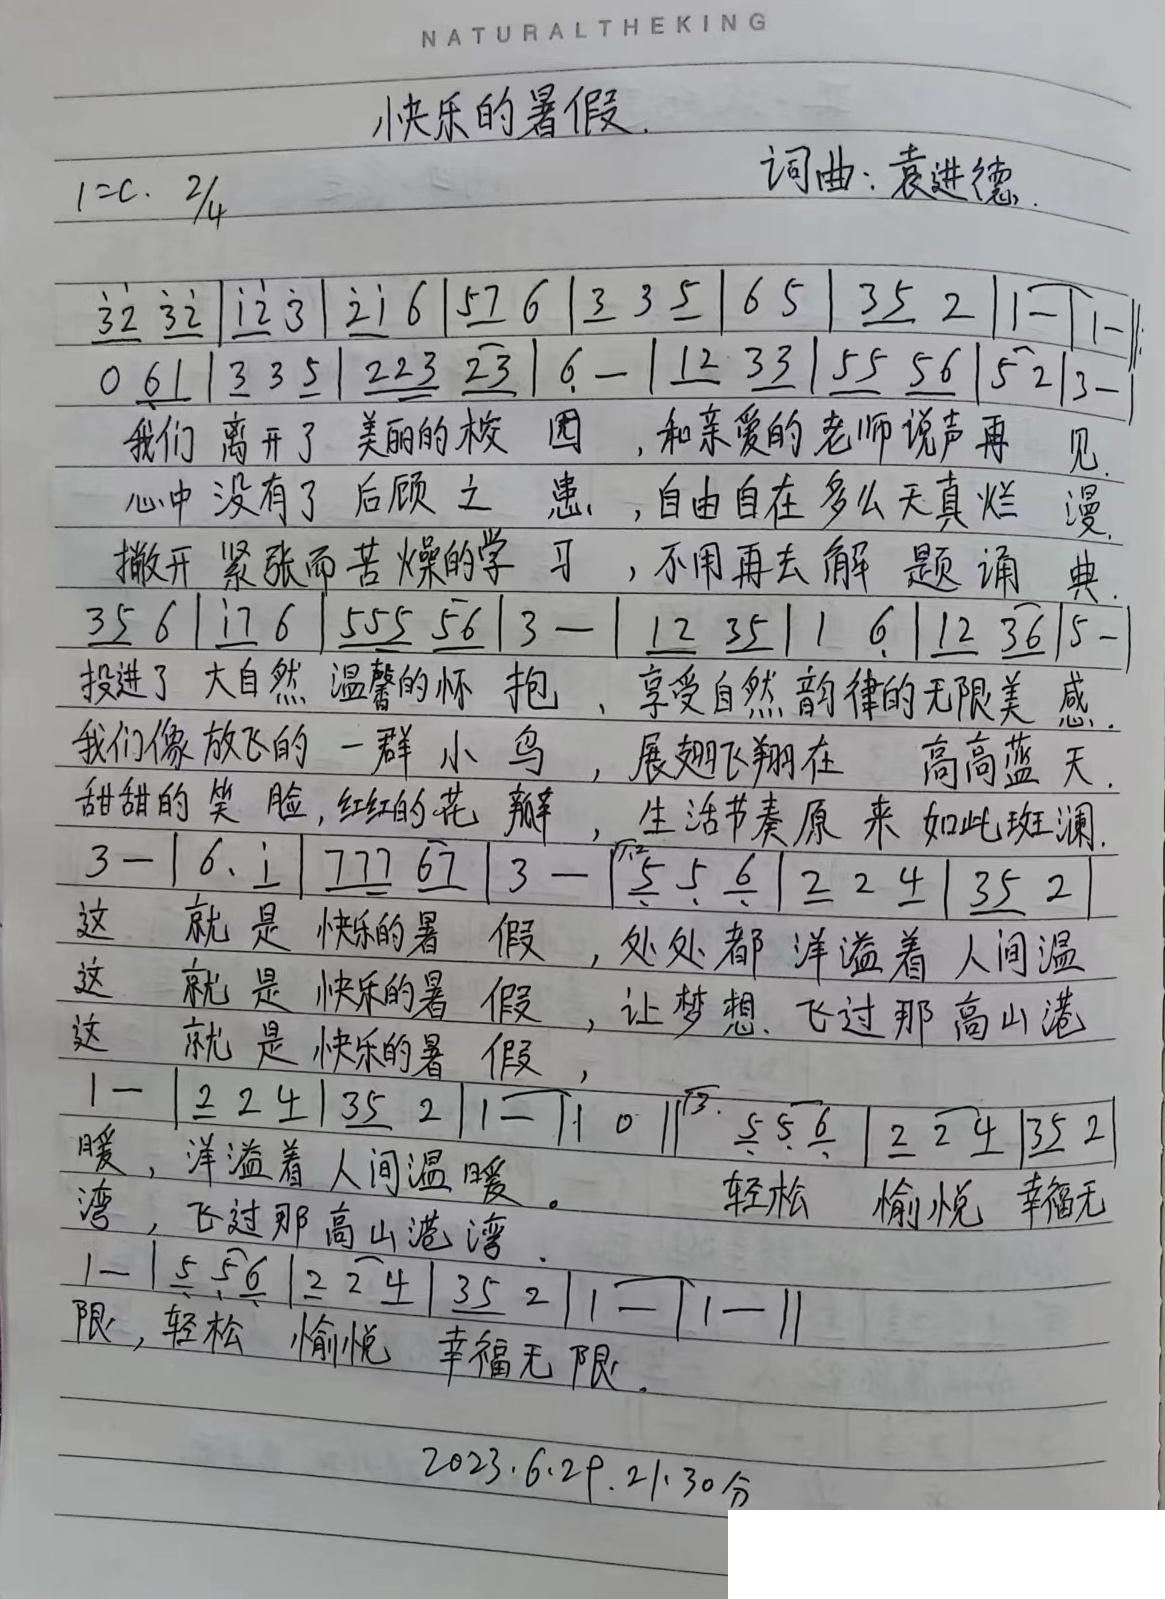 NATURALTHEKING
快乐的暑假.
1=C. 2/4 词曲:袁进德.
3̇2̇ 3̇2̇ | 1̇2̇ 3̇ | 2̇1̇ 6 | 57 6 | 3 3 5 | 6 5 | 35 2 | 1 — | 1 — :‖
0 6̣1 | 3 3 5 | 223 23 | 6̣ — | 12 33 | 55 56 | 5 2 | 3 — |
我们 离开了 美丽的校 园 ,和亲爱的老师说声再 见.
心中 没有了 后顾之 患 ,自由自在多么天真烂 漫.
撇开 紧张而苦燥的学 习 ,不用再去解 题诵 典.
35 6 | 1̇7 6 | 555 56 | 3 — | 12 35 | 1 6̣ | 12 36 | 5 — |
投进了 大自然 温馨的怀 抱 、享受自然韵律的无限美 感.
我们像放飞的 一群 小 鸟 ,展翅飞翔在 高高蓝 天.
甜甜的 笑 脸,红红的花 瓣 ,生活节奏原 来 如此斑澜.
3 — | 6. 1̇ | 777 67 | 3 — | 1.2 5̣ 5̣ 6̣ | 2 2 4 | 35 2 |
这 就 是 快乐的暑 假 ,处处都 洋溢着 人间温
这 就 是 快乐的暑 假 ,让梦想. 飞过那 高山港
这 就 是 快乐的暑 假 ,
1 — | 2 2 4 | 35 2 | 1 — | 1 0 ‖ 3. 5̣ 5̣ 6̣ | 2 2 4 | 35 2 |
暖,洋溢着 人间温 暖。 轻松 愉悦 幸福无
湾,飞过那 高山港 湾.
1 — | 5̣ 5̣ 6̣ | 2 2 4 | 35 2 | 1 — | 1 — ‖
限,轻松 愉悦 幸福无 限.
2023.6.29.21.30分